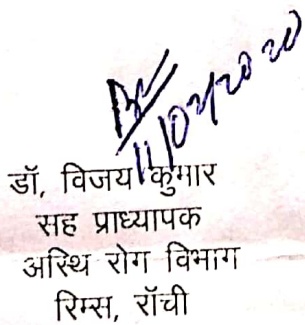 11/02/2020
डॉ, विजय कुमार
सह प्राध्यापक
अस्थि रोग विभाग
रिम्स, रॉची